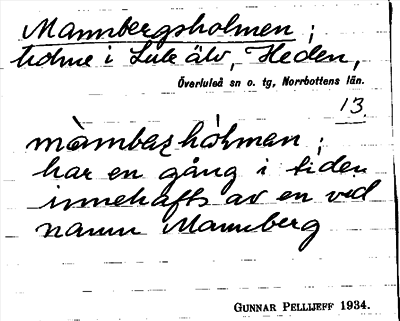 Mannbergsholmen ;
holme i Lule älv, Heden,
Överluleå sn o. tg, Norrbottens län.
13.
har en gång i tiden
innehafts av en vid
namn Mannberg
GUNNAR PELLIJEFF 1934.